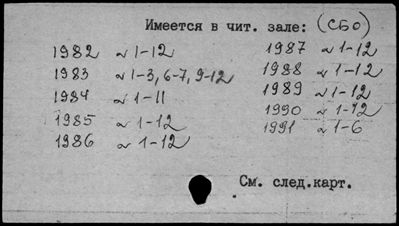 Имеется в чит. зале: (СБО)
1982 № 1-12
1983 № 1-3, 6-7, 9-12
1984 № 1-11
1985 № 1-12
1986 № 1-12
1987 № 1-12
1988 № 1-12
1989 № 1-12
1990 № 1-12
1991 № 1-6
См. след.карт.